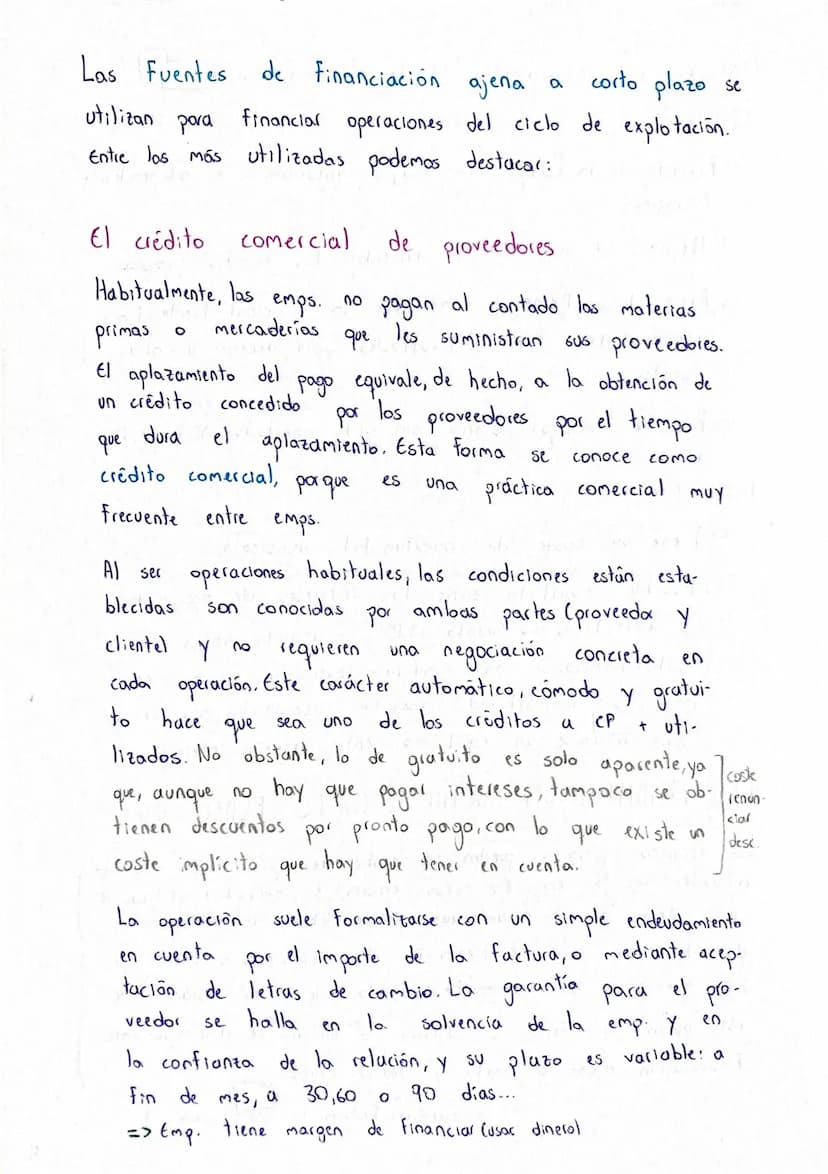 Las fuentes de financiación ajena a corto plazo se
utilizan para financiar operaciones del ciclo de explotación.
Entre las más utilizadas podemos destacar:
El crédito comercial de proveedores
Habitualmente, las emps. no pagan al contado las materias
primas o mercaderías que les suministran sus proveedores.
El aplazamiento del pago equivale, de hecho, a la obtención de
un crédito concedido por los proveedores por el tiempo
que dura el aplazamiento. Esta forma se conoce como
crédito comercial, porque es una práctica comercial muy
frecuente entre emps.
Al ser operaciones habituales, las condiciones están esta-
blecidas son conocidas por ambas partes (proveedor y
cliente) y no requieren una negociación concreta en
cada operación. Este carácter automático, cómodo y gratui-
to hace que sea uno de los créditos a CP + uti-
lizados. No obstante, lo de gratuito es solo aparente, ya
que, aunque no hay que pagar intereses, tampoco se ob-
tienen descuentos por pronto pago, con lo que existe un
coste implícito que hay que tener en cuenta.
coste
renun-
ciar
desc.
La operación suele formalizarse con un simple endeudamiento
en cuenta por el importe de la factura, o mediante acep-
tación de letras de cambio. La garantía para el pro-
veedor se halla en la solvencia de la emp. y en
la confianza de la relación, y su plazo es variable: a
fin de mes, a 30, 60 o 90 días...
=> Emp. tiene margen de financiar (usar dinero)